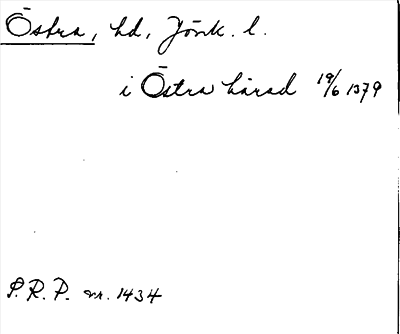 Östra, hd, Jönk. l.
i Östra härad 19/6 1379
S.R.P. nr. 1434